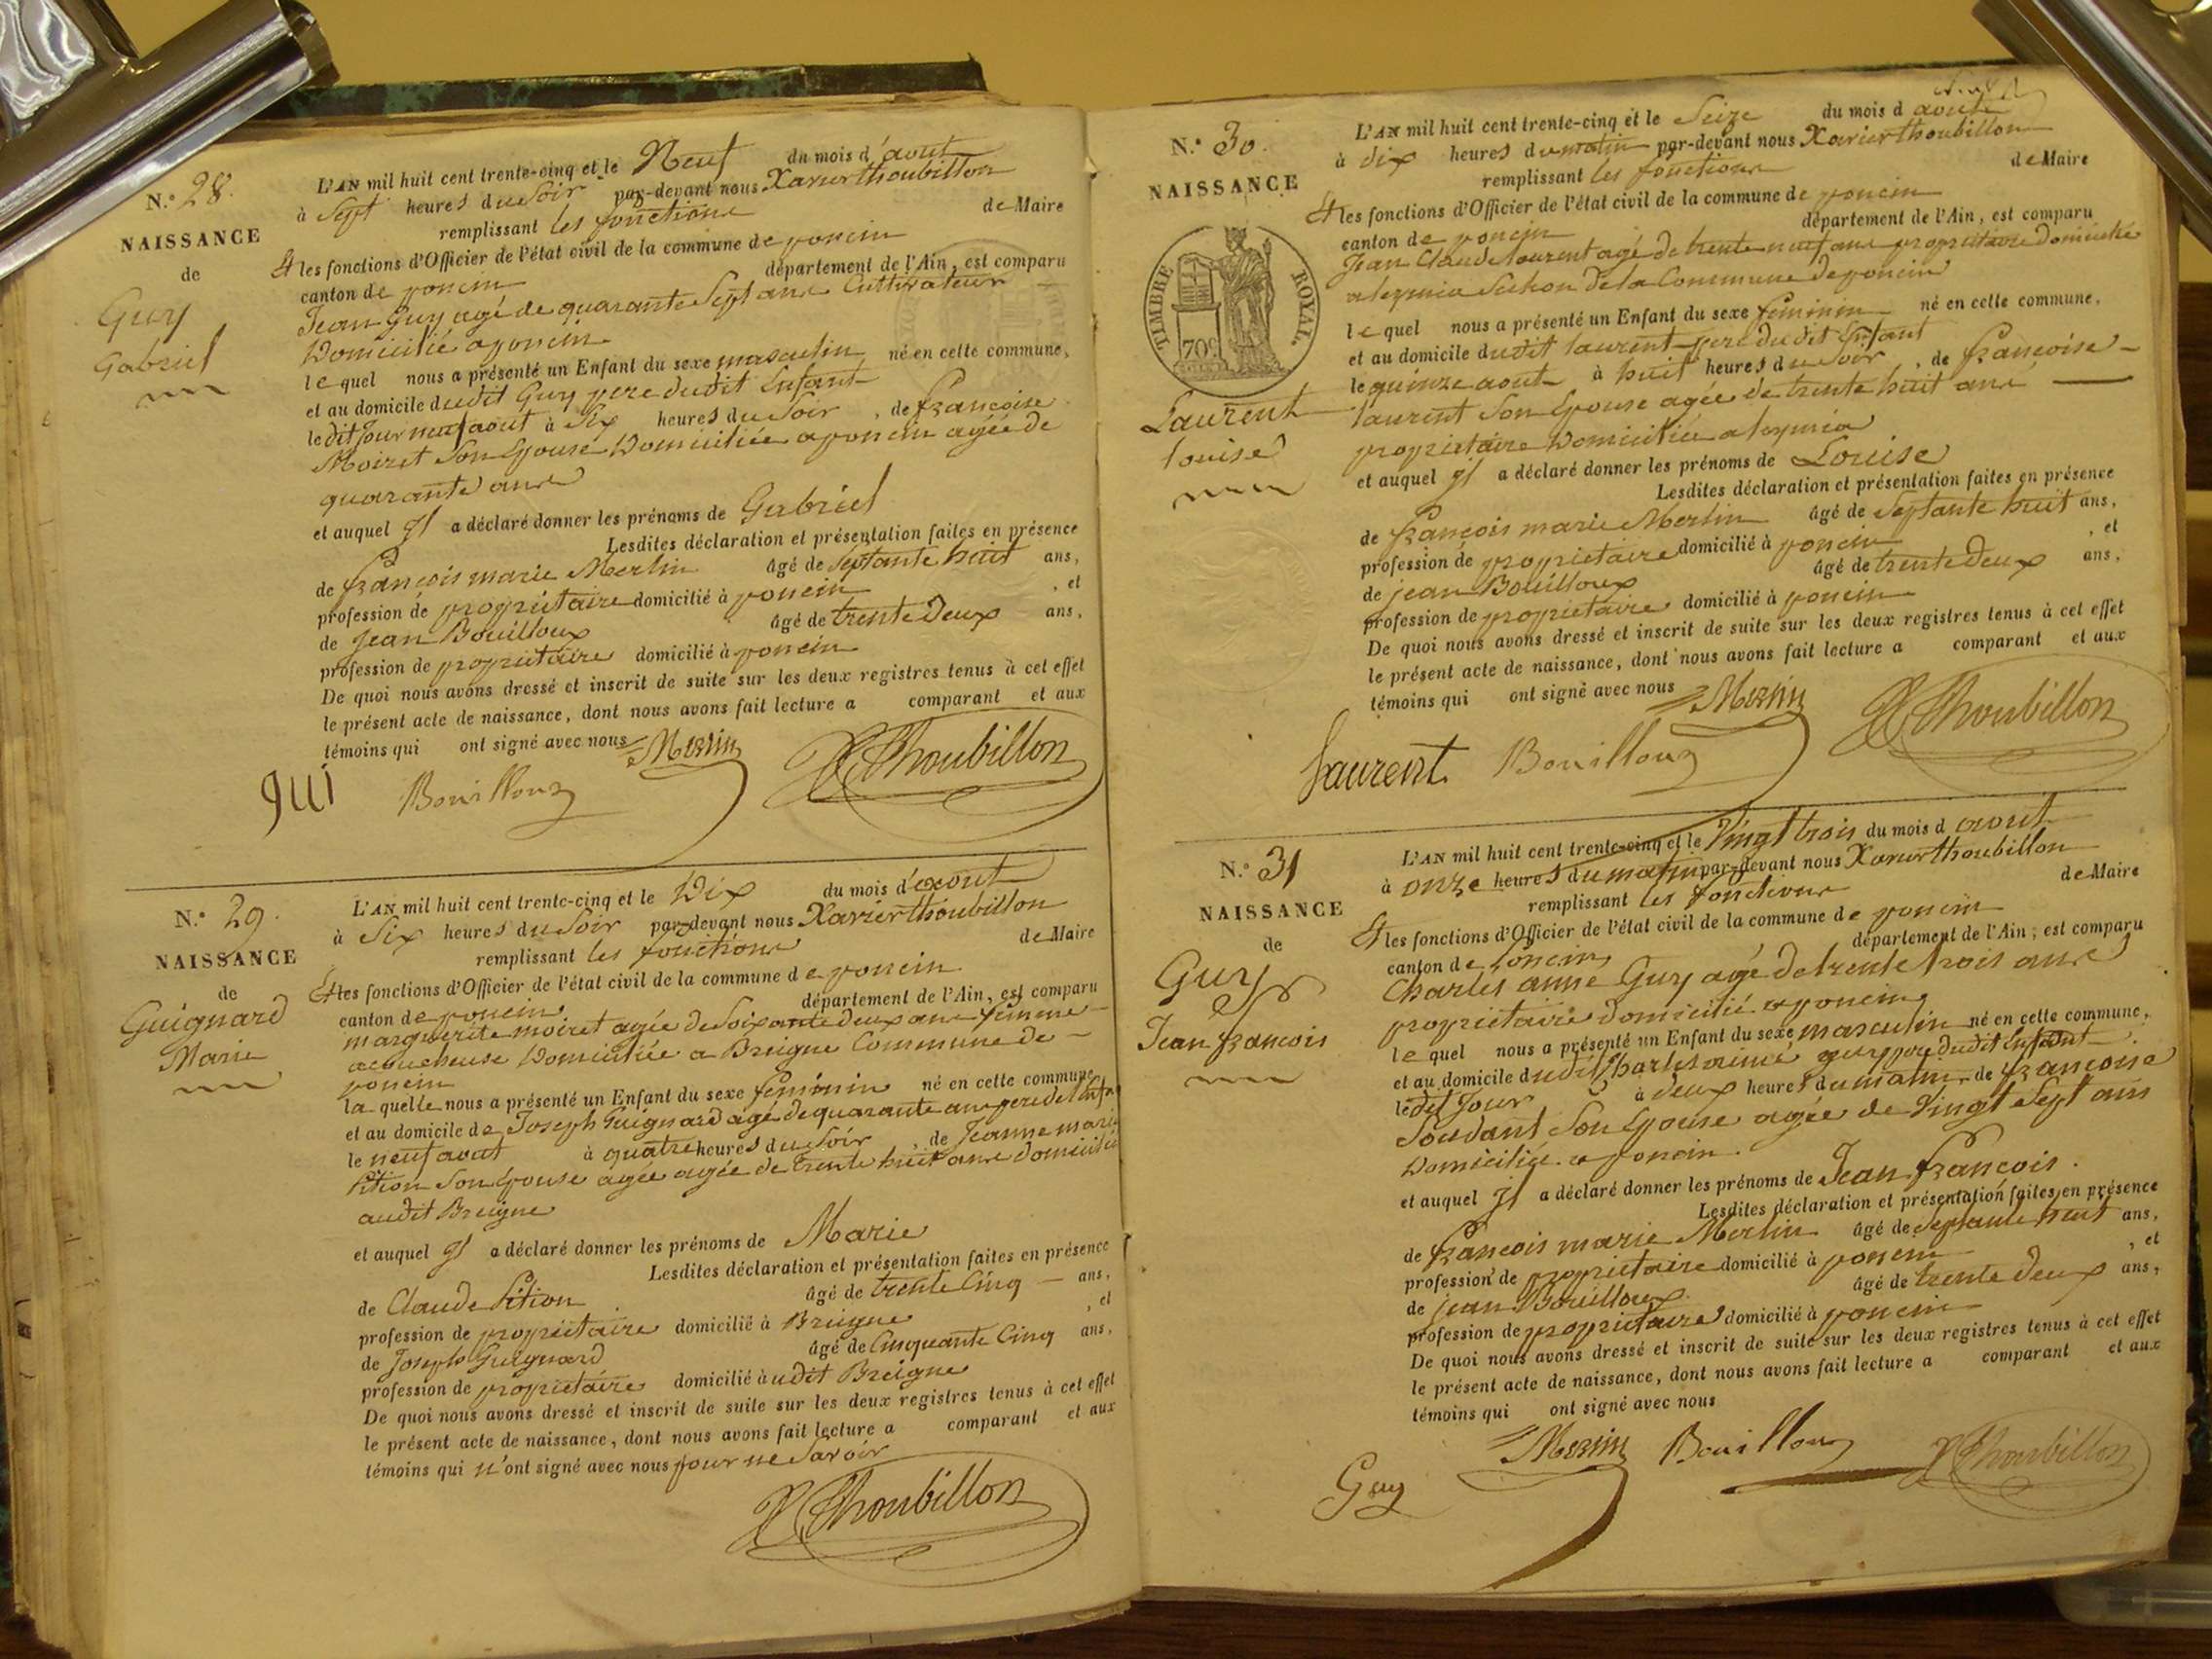 N.° 28.
NAISSANCE
de
Guy
Gabriel
L'AN mil huit cent trente-cinq et le Neuf du mois d'aout
à Sept heures du Soir par-devant nous Xavier thoubillon
remplissant les fonctions de Maire
Et les fonctions d'Officier de l'état civil de la commune de poncin
canton de poncin département de l'Ain, est comparu
Jean Guy agé de quarante Sept ans Cultivateur
Domicilié a poncin
lequel nous a présenté un Enfant du sexe masculin né en cette commune,
et au domicile dudit Guy pere dudit Enfant
le dit Jour neuf aout à Six heures du Soir, de françoise
Moiret Son Epouse Domiciliée a poncin agée de
quarante ans
et auquel Il a déclaré donner les prénoms de Gabriel
Lesdites déclaration et présentation faites en présence
de françois marie Merlin âgé de Septante huit ans,
profession de propriétaire domicilié à poncin, et
de Jean Bouilloux âgé de trente Deux ans,
profession de propriétaire domicilié à poncin
De quoi nous avons dressé et inscrit de suite sur les deux registres tenus à cet effet
le présent acte de naissance, dont nous avons fait lecture a comparant et aux
témoins qui ont signé avec nous Merlin
gui Bouilloux X Thoubillon
N.° 29.
NAISSANCE
de
Guignard
Marie
L'AN mil huit cent trente-cinq et le Dix du mois d'aout
à Six heures du Soir par-devant nous Xavier thoubillon
remplissant les fonctions de Maire
Et les fonctions d'Officier de l'état civil de la commune de poncin
canton de poncin département de l'Ain, est comparu
marguerite moiret agée de Soixante deux ans femme
accucheuse Domiciliée a Breigne Commune de
poncin
laquelle nous a présenté un Enfant du sexe feminin né en cette commune
et au domicile de Joseph Guignard agé de quarante ans pere de l'Enfa
le neuf aout à quatre heures du Soir, de Jeanne marie
Pition Son Epouse agée agée de trente huit ans domiciliée
audit Breigne
et auquel Il a déclaré donner les prénoms de Marie
Lesdites déclaration et présentation faites en présence
de Claude Pition âgé de trente Cinq ans,
profession de propriétaire domicilié à Breigne, et
de Joseph Guignard âgé de Cinquante Cinq ans,
profession de propriétaire domicilié à udit Breigne
De quoi nous avons dressé et inscrit de suite sur les deux registres tenus à cet effet
le présent acte de naissance, dont nous avons fait lecture a comparant et aux
témoins qui n'ont signé avec nous pour ne Savoir
X Thoubillon
N.° 30.
NAISSANCE
TIMBRE ROYAL.
70c
Laurent
louise
L'AN mil huit cent trente-cinq et le Seize du mois d aoute
à dix heures du matin par-devant nous Xavier thoubillon
remplissant les fonctions de Maire
Et les fonctions d'Officier de l'état civil de la commune de poncin
canton de poncin département de l'Ain, est comparu
Jean Claude laurent agé de trente neuf ans propriétaire domicilié
a leymia Section de la Commune de poncin
lequel nous a présenté un Enfant du sexe feminin né en cette commune,
et au domicile dudit laurent pere dudit Enfant
le quinze aout à huit heures du Soir, de françoise
laurent Son Epouse agée de trente huit ans
propriétaire Domiciliée a leymia
et auquel Il a déclaré donner les prénoms de Louise
Lesdites déclaration et présentation faites en présence
de françois marie Merlin âgé de Septante huit ans,
profession de propriétaire domicilié à poncin, et
de jean Bouilloux âgé de trente Deux ans,
profession de propriétaire domicilié à poncin
De quoi nous avons dressé et inscrit de suite sur les deux registres tenus à cet effet
le présent acte de naissance, dont nous avons fait lecture a comparant et aux
témoins qui ont signé avec nous Merlin
Laurent Bouilloux X Thoubillon
N.° 31
NAISSANCE
de
Guy
Jean françois
L'AN mil huit cent trente-cinq et le Vingt trois du mois d aout
à onze heures du matin par-devant nous Xavier thoubillon
remplissant les fonctions de Maire
Et les fonctions d'Officier de l'état civil de la commune de poncin
canton de poncin département de l'Ain, est comparu
Charles anne Guy agé de trente trois ans
propriétaire domicilié a poncin
lequel nous a présenté un Enfant du sexe masculin né en cette commune,
et au domicile dudit Charles aimé guy pere dudit Enfant
le dit Jour à deux heures du matin de françoise
Soudant Son Epouse agée de Vingt Sept ans
Domiciliée a poncin.
et auquel Il a déclaré donner les prénoms de Jean françois.
Lesdites déclaration et présentation faites en présence
de françois marie Merlin âgé de Septante huit ans,
profession de propriétaire domicilié à poncin, et
de jean Bouilloux âgé de trente deux ans,
profession de propriétaire domicilié à poncin
De quoi nous avons dressé et inscrit de suite sur les deux registres tenus à cet effet
le présent acte de naissance, dont nous avons fait lecture a comparant et aux
témoins qui ont signé avec nous
Guy Merlin Bouilloux X Thoubillon